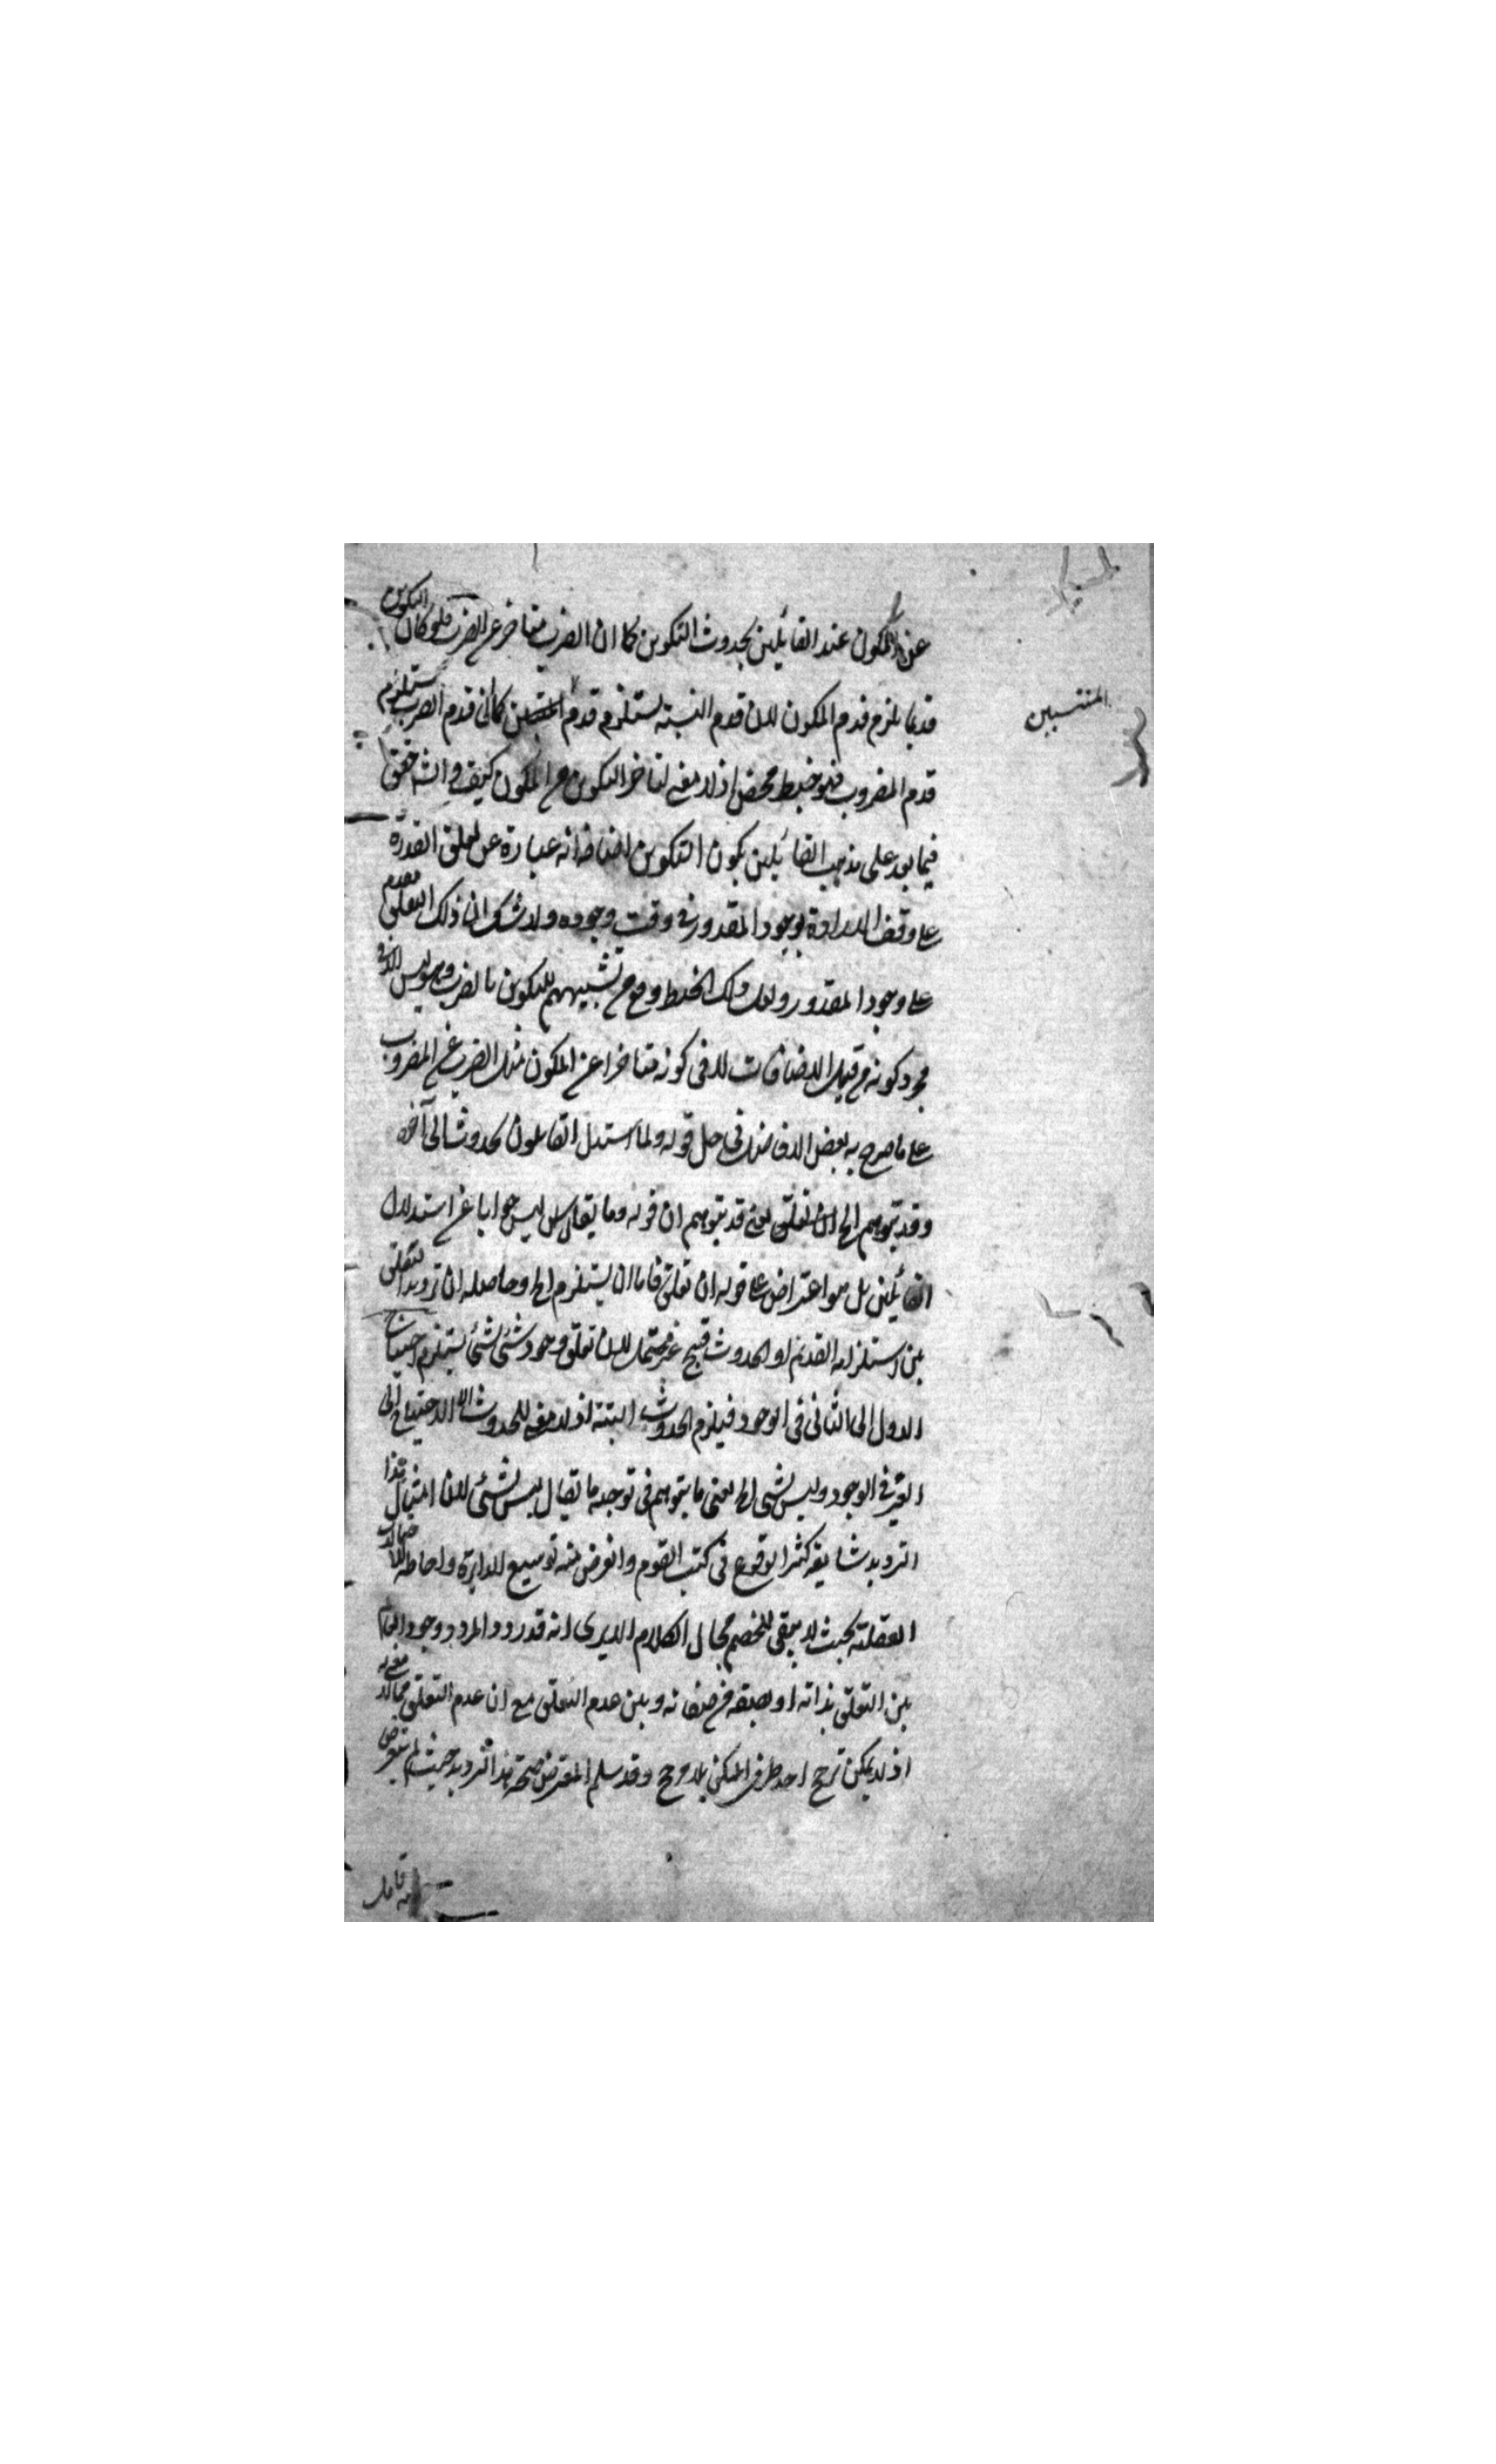 عن المكون عند القائلين بحدوث التكوين كما ان الضرب متاخر عن الضرب فلو كان التكوين
قديما يلزم قدم المكون لان قدم النسبة يستلزم قدم المنتسبين كما ان قدم الضرب يستلزم
المنتسبين
قدم المضروب فهو خبط محض اذ لا معنى لتاخر التكوين عن المكون كيف والشه حقق
فيما بعد على مذهب القائلين بكون التكوين اضافة انه عبارة عن تعلق القدرة
على وفق الارادة بوجود المقدور في وقت وجوده ولا شك ان ذلك التعلق مقدم
على وجود المقدور ولعل ذلك الخبط وقع من تشبيههم للتكوين بالضرب وهو ليس الا في
مجرد كونه من قبيل الاضافات لا في كونه متاخرا عن المكون مثل الضرب عن المضروب
على ما صرح به بعض الافاضل في حل قوله ولما استدل القائلون بحدوث الى آخره
وقد يتوهم الخ ان تعلق يعني قد يتوهم ان قوله وما يقال ليس جوابا عن استدلال
القائلين بل هو اعتراض على قوله ان تعلق فاما ان يستلزم الخ وحاصله ان ترديد التعلق
بين استلزامه القدم او الحدوث قبيح غير محتمل لان تعلق وجود شئ بشئ يستلزم احتياج
الاول الى الثاني في الوجود فيلزم الحدوث البتة اذ لا معنى للحدوث الا الاحتياج الى
الغير في الوجود وليس بشئ الخ يعني ما يتوهم في توجيه ما يقال ليس بشئ لان امثال هذا
الترديد شايعة كثير الوقوع في كتب القوم والغرض منه توسيع الدايرة واحاطة الاحتمالات
العقلية بحيث لا يبقى للخصم مجال الكلام الا يرى انه قد ردد المردد وجود العالم
بين التعلق بذاته او بصفة من صفاته وبين عدم التعلق مع ان عدم التعلق مما لا معنى له
اذ لا يمكن ترجح احد طرفي الممكن بلا مرجح وقد سلم المعترض صحة هذا الترديد حيث لم يتعرض
له قابل